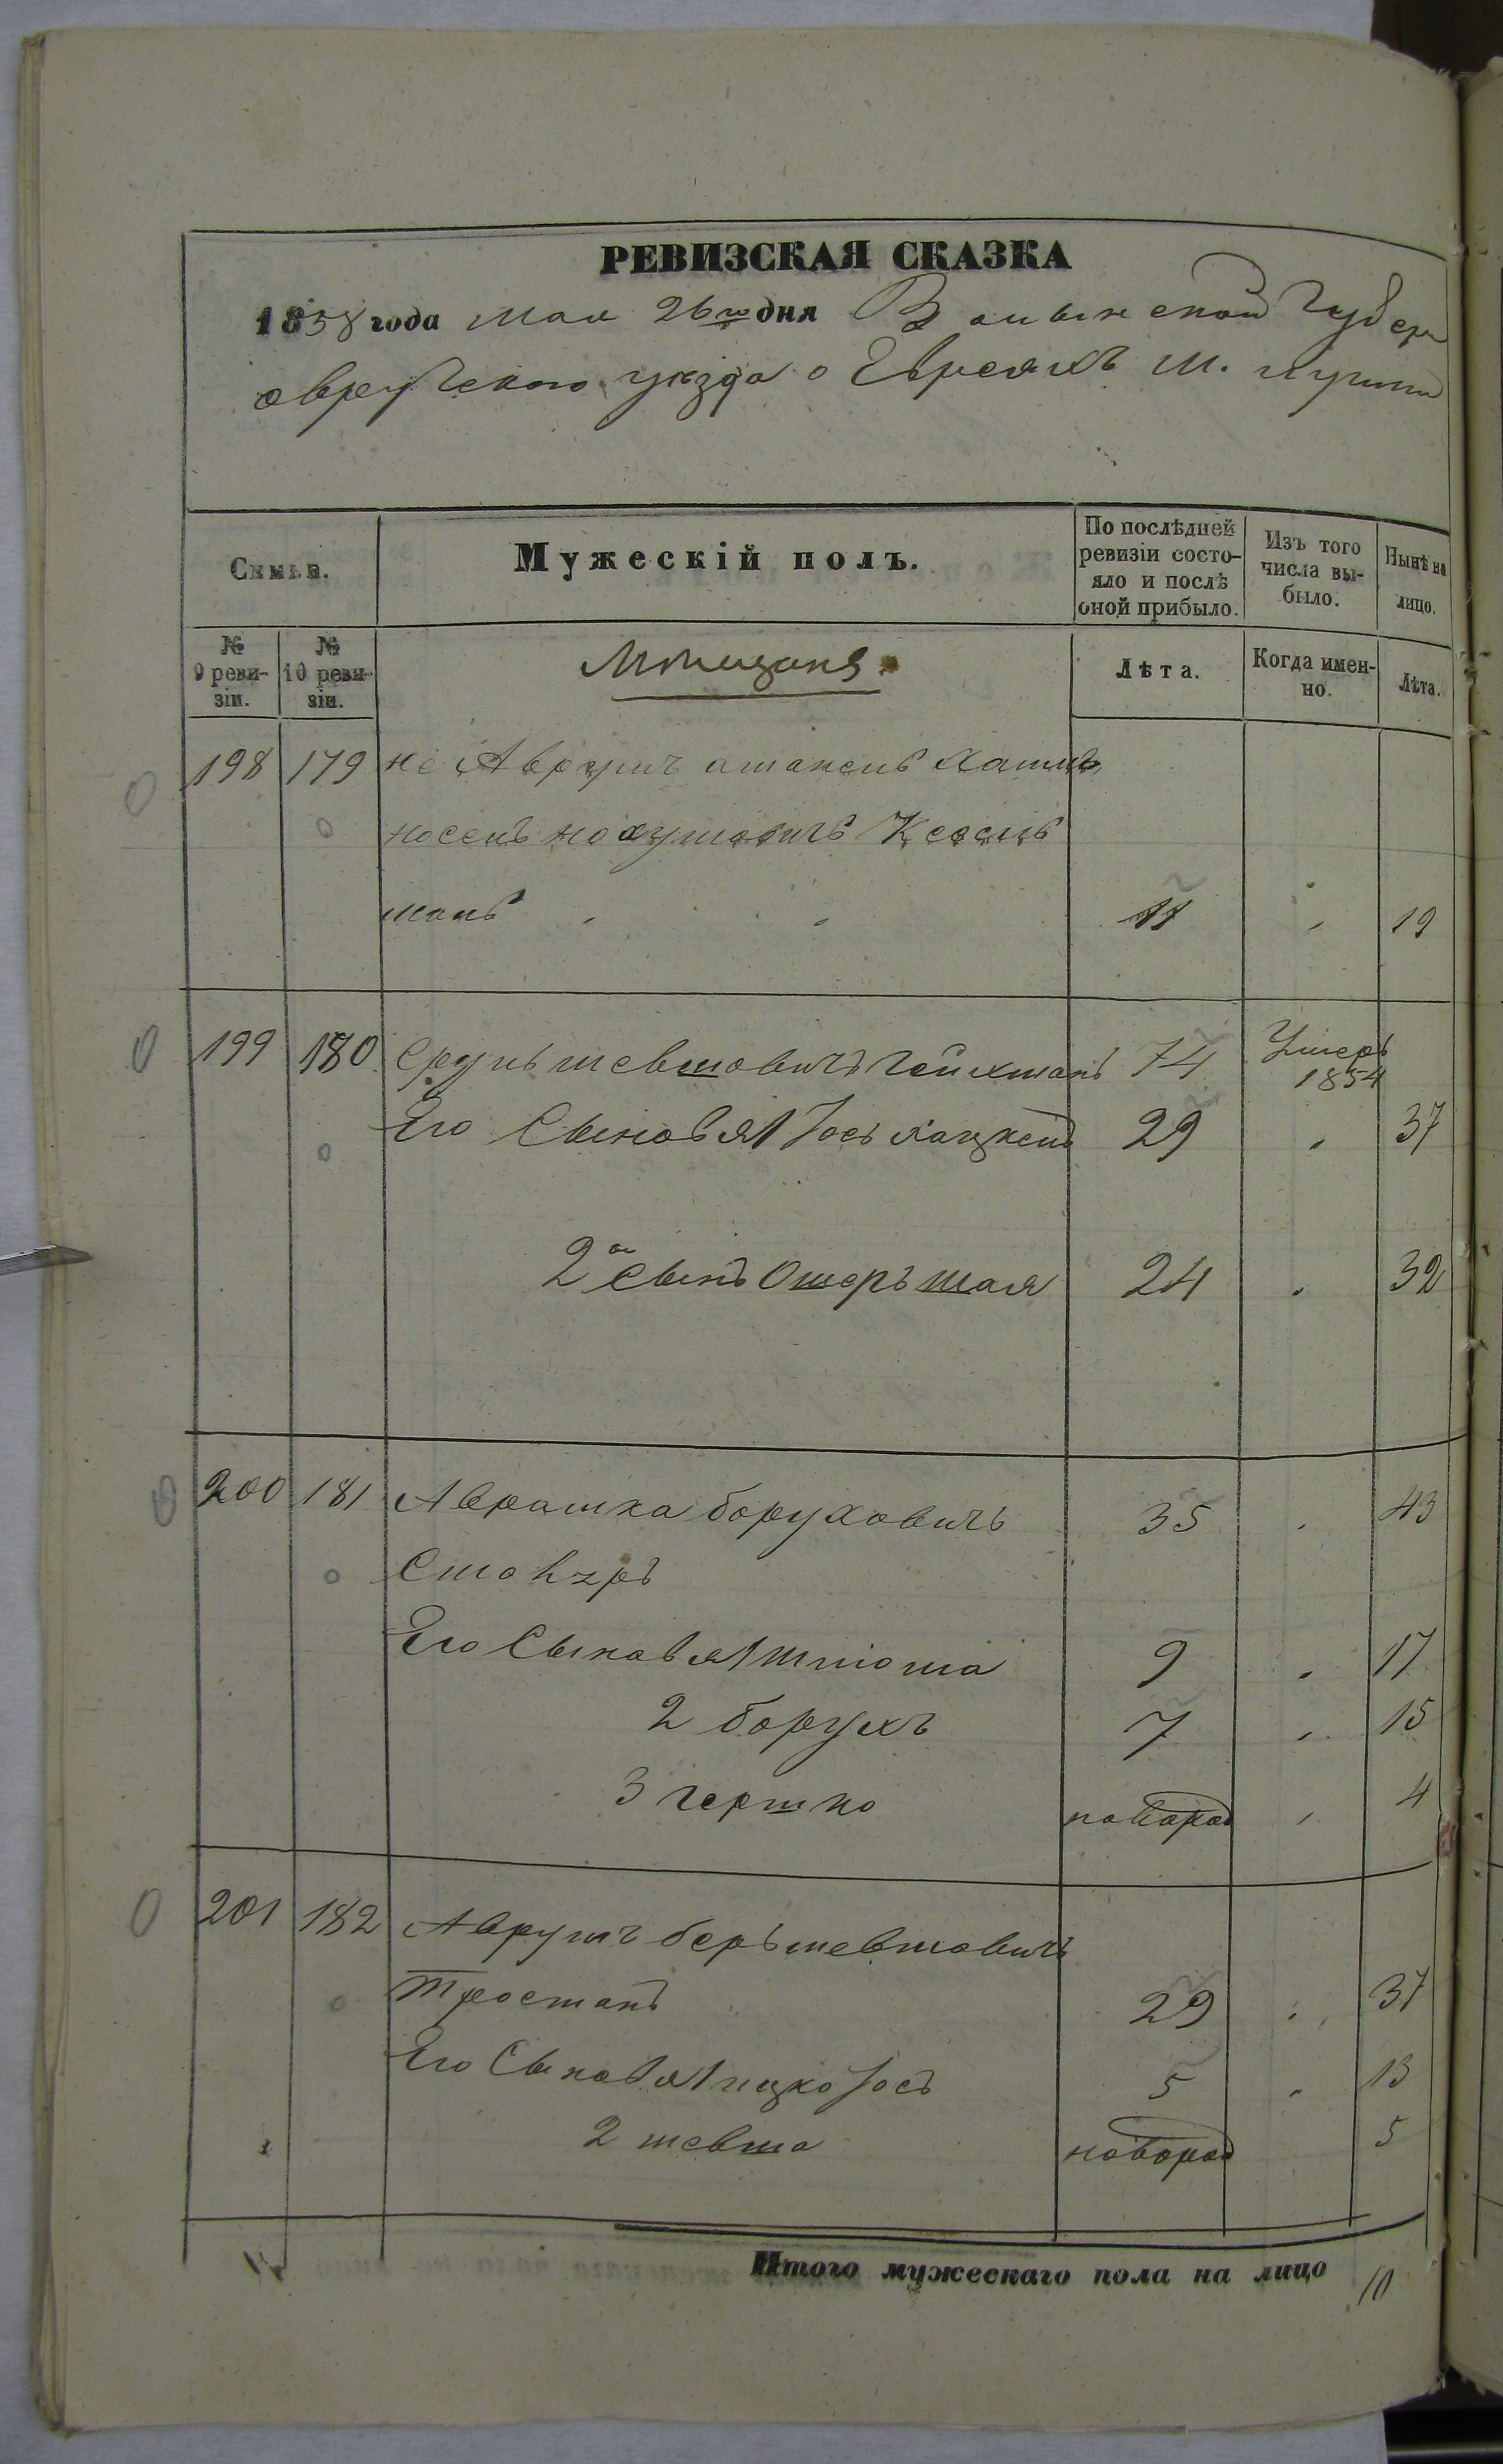 РЕВИЗСКАЯ СКАЗКА
1858 года мая 26го дня Волынской Губер
овручского уезда о Евреяхъ м. лугины
Семьи.
Мужескій полъ.
По послѣдней ревизіи состояло и послѣ оной прибыло.
Изъ того числа выбыло.
Нынѣ на лицо.
№ 9 ревизіи.
№ 10 ревизіи.
Мѣщане.
Лѣта.
Когда именно.
Лѣта.
198 179 не Аврумъ
носенъ нохумовичъ
манъ 11 19
199 180 Срулъ шевшовичъ гойхманъ 74 Умеръ 1854
Его Сыновья 1 Іось 29 37
2й Сынъ Ошеръ шая 24 32
200 181 Аврашка боруховичъ 35 43
Его Сыновья 1 9 17
2 борухъ 7 15
3 гершко новорож 4
201 182 Аврумъ беръ шевшовичъ
тростанъ 29 37
Его Сыновья 1 ицко Іось 5 13
2 шевша новорож 5
Итого мужескаго пола на лицо 10